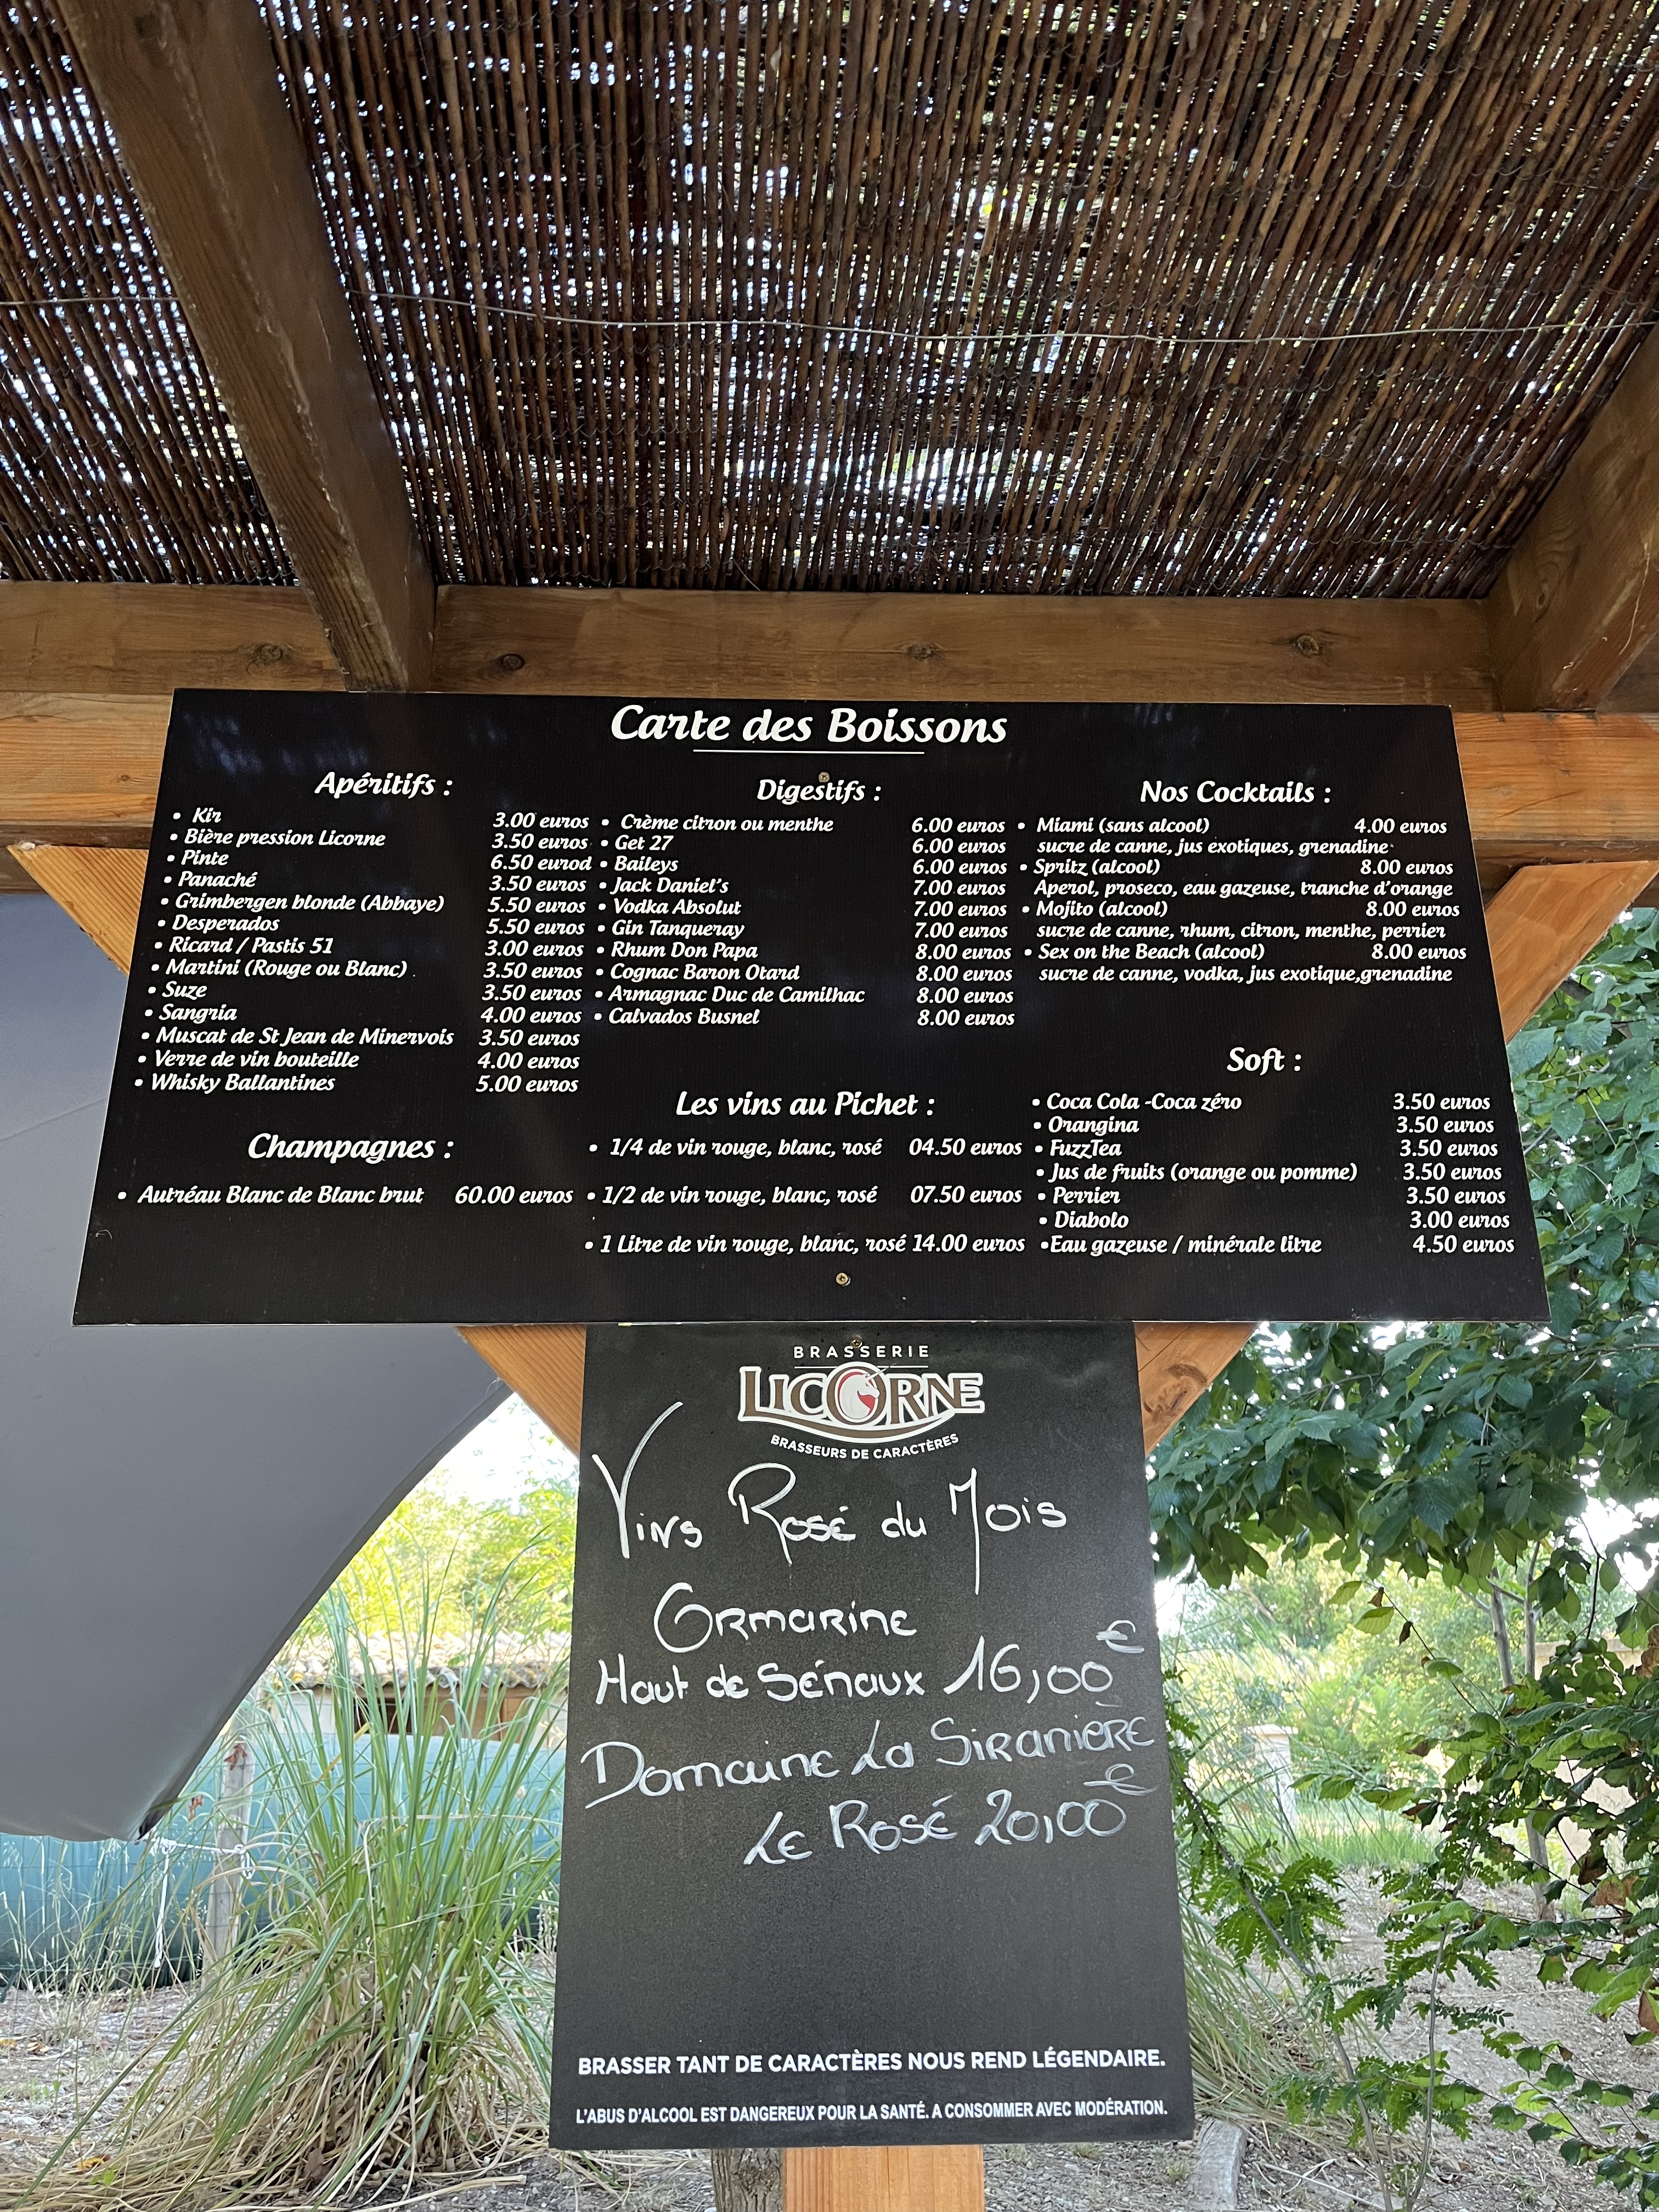 Carte des Boissons
Apéritifs :
• Kir 3.00 euros
• Bière pression Licorne 3.50 euros
• Pinte 6.50 eurod
• Panaché 3.50 euros
• Grimbergen blonde (Abbaye) 5.50 euros
• Desperados 5.50 euros
• Ricard / Pastis 51 3.00 euros
• Martini (Rouge ou Blanc) . 3.50 euros
• Suze 3.50 euros
• Sangria 4.00 euros
• Muscat de St Jean de Minervois 3.50 euros
• Verre de vin bouteille 4.00 euros
• Whisky Ballantines 5.00 euros
Champagnes :
• Autréau Blanc de Blanc brut 60.00 euros
Digestifs :
• Crème citron ou menthe 6.00 euros
• Get 27 6.00 euros
• Baileys 6.00 euros
• Jack Daniel's 7.00 euros
• Vodka Absolut 7.00 euros
• Gin Tanqueray 7.00 euros
• Rhum Don Papa 8.00 euros
• Cognac Baron Otard 8.00 euros
• Armagnac Duc de Camilhac 8.00 euros
• Calvados Busnel 8.00 euros
Les vins au Pichet :
• 1/4 de vin rouge, blanc, rosé 04.50 euros
• 1/2 de vin rouge, blanc, rosé 07.50 euros
• 1 Litre de vin rouge, blanc, rosé 14.00 euros
Nos Cocktails :
• Miami (sans alcool) 4.00 euros
sucre de canne, jus exotiques, grenadine
• Spritz (alcool) 8.00 euros
Aperol, proseco, eau gazeuse, tranche d'orange
• Mojito (alcool) 8.00 euros
sucre de canne, rhum, citron, menthe, perrier
• Sex on the Beach (alcool) 8.00 euros
sucre de canne, vodka, jus exotique,grenadine
Soft :
• Coca Cola -Coca zéro 3.50 euros
• Orangina 3.50 euros
• FuzzTea 3.50 euros
• Jus de fruits (orange ou pomme) 3.50 euros
• Perrier 3.50 euros
• Diabolo 3.00 euros
•Eau gazeuse / minérale litre 4.50 euros
BRASSERIE
LICORNE
BRASSEURS DE CARACTÈRES
Vins Rosé du Mois
Ormarine
Haut de Sénaux 16,00€
Domaine La Siranière
Le Rosé 20,00€
BRASSER TANT DE CARACTÈRES NOUS REND LÉGENDAIRE.
L'ABUS D'ALCOOL EST DANGEREUX POUR LA SANTÉ. A CONSOMMER AVEC MODÉRATION.